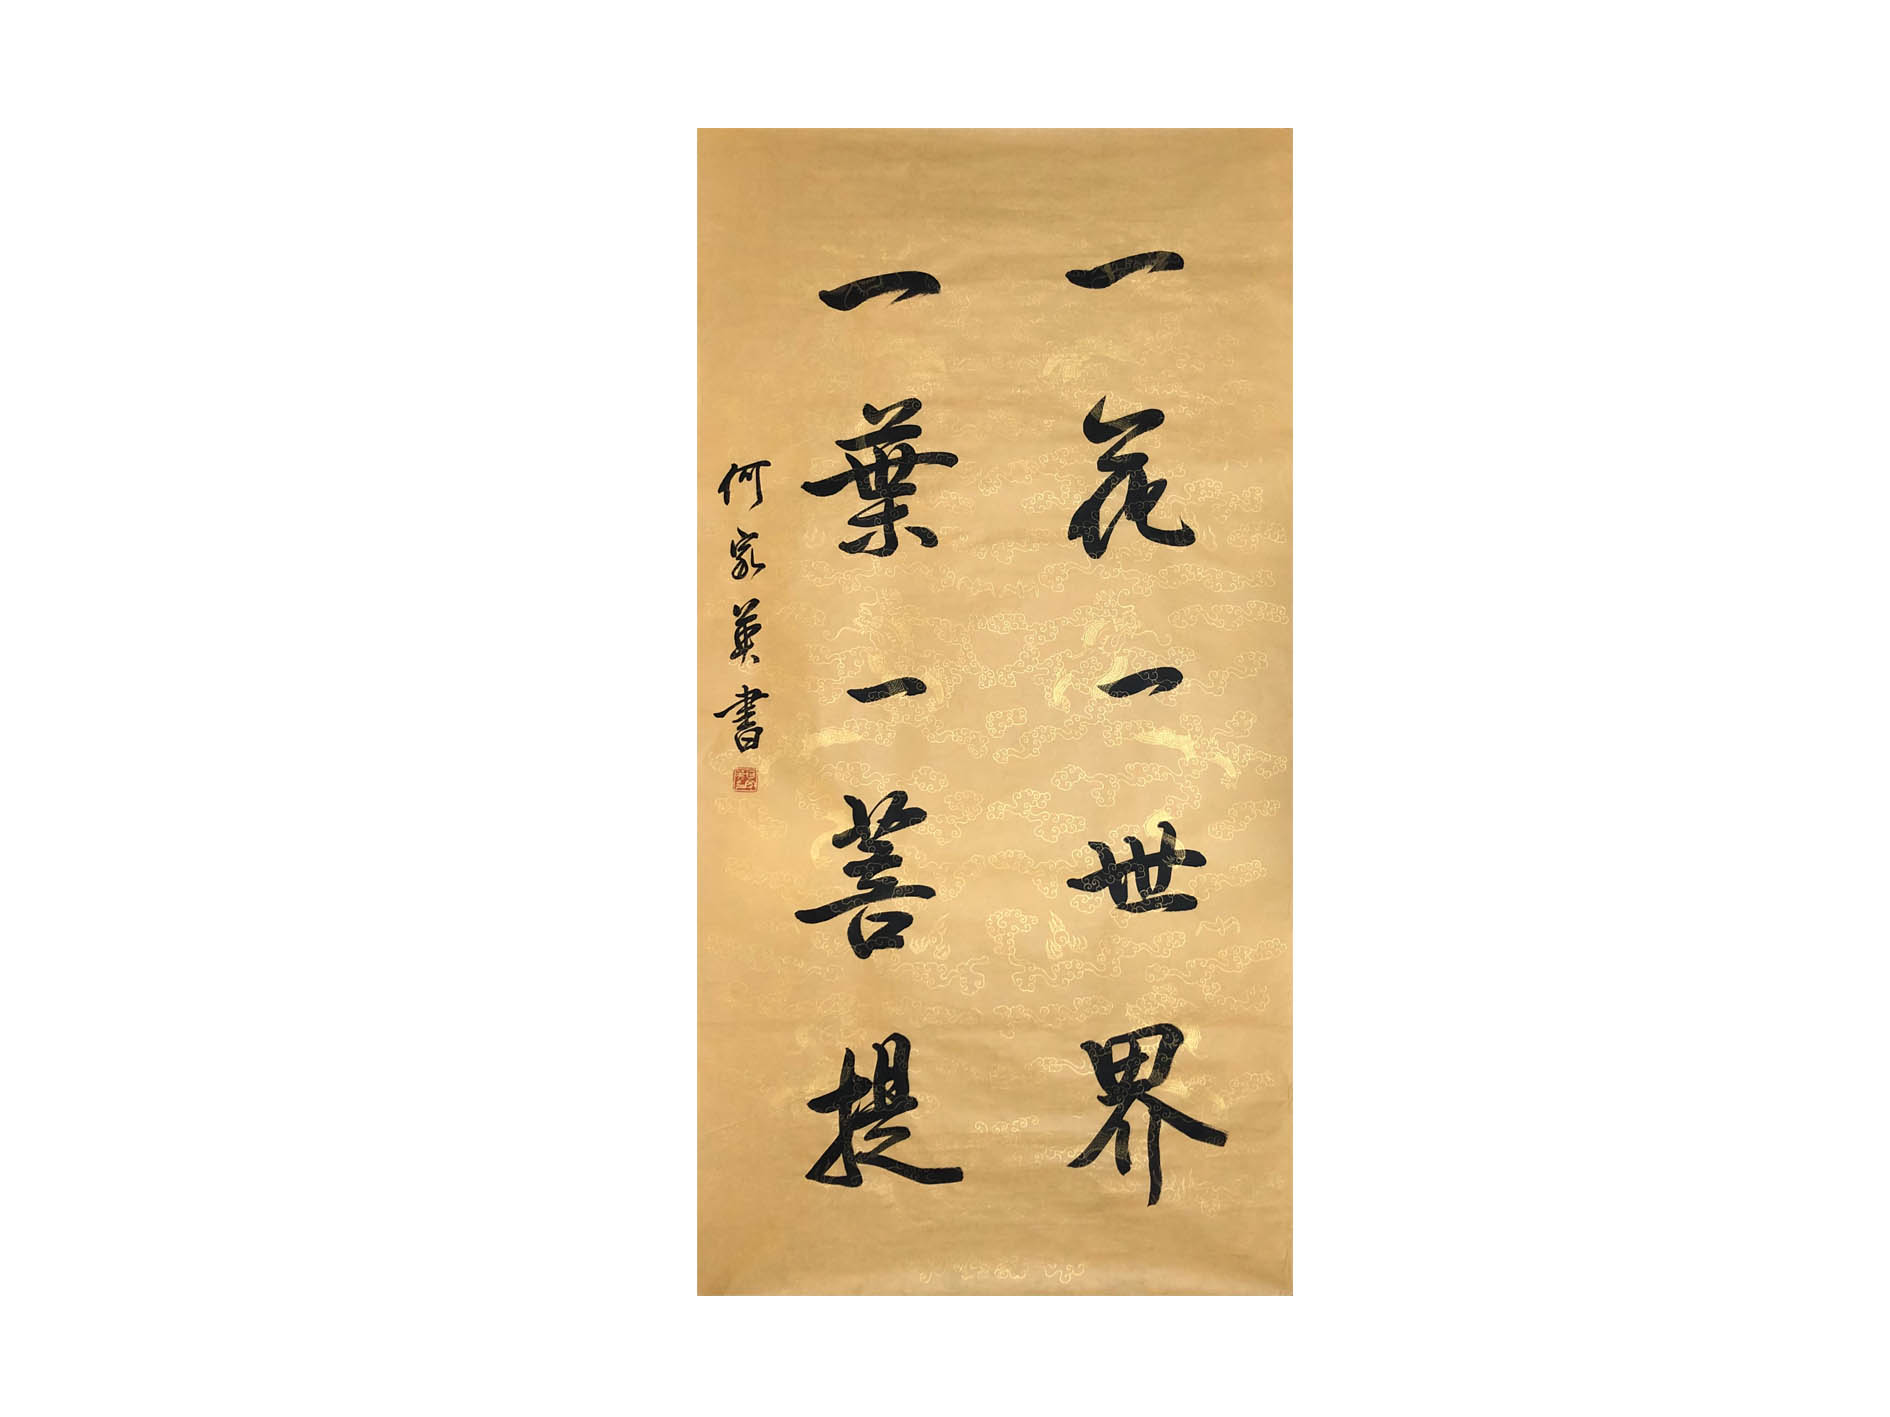 一花一世界
一葉一菩提
何家英書